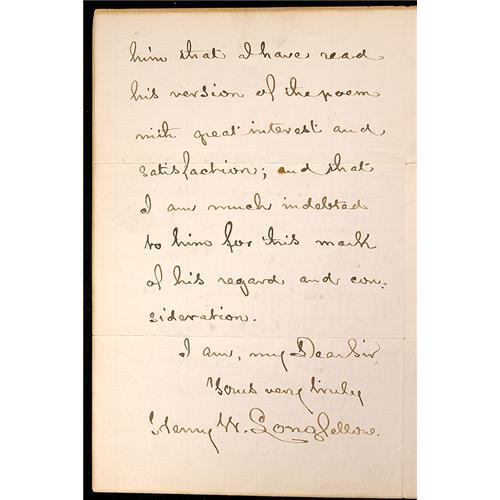 him that I have read
his version of the poem
with great interest and
satisfaction; and that
I am much indebted
to him for this mark
of his regard and con-
sideration.
I am, my Dear Sir,
Yours very truly
Henry W. Longfellow.